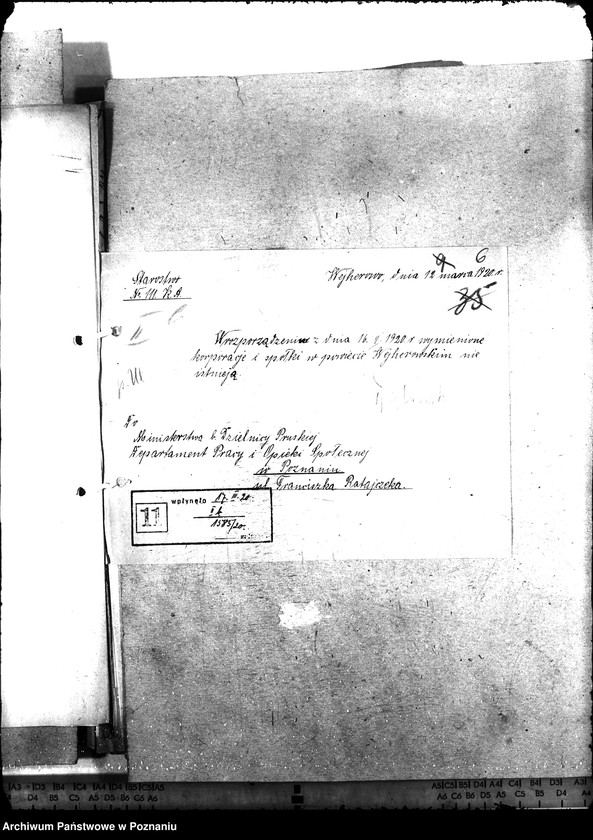 6
Starostwo
Nr. III. K. A
Wejherowo, dnia 12 marca 1920 r.
35
II
W rozporządzeniu z dnia 16. 1920 r wymienione
korporacje i spółki w powiecie Wejherowskim nie
istnieją.
p. III
Do
Ministerstwa b. Dzielnicy Pruskiej
Departament Pracy i Opieki Społecznej
w Poznaniu
ul. Franciszka Ratajczaka.
11
wpłynęło 17. III. 20.
1585/20.
A3 D3 B4 C4 A4 D4 B5 C5 A5
D4 B5 C5 A5 D5 B6 C6 A6
A5 C5 B5 D4 A4 C4 B4 D3 A3
A6 C6 B6 D5 A5 C5 B5 D4 A4
Archiwum Państwowe w Poznaniu